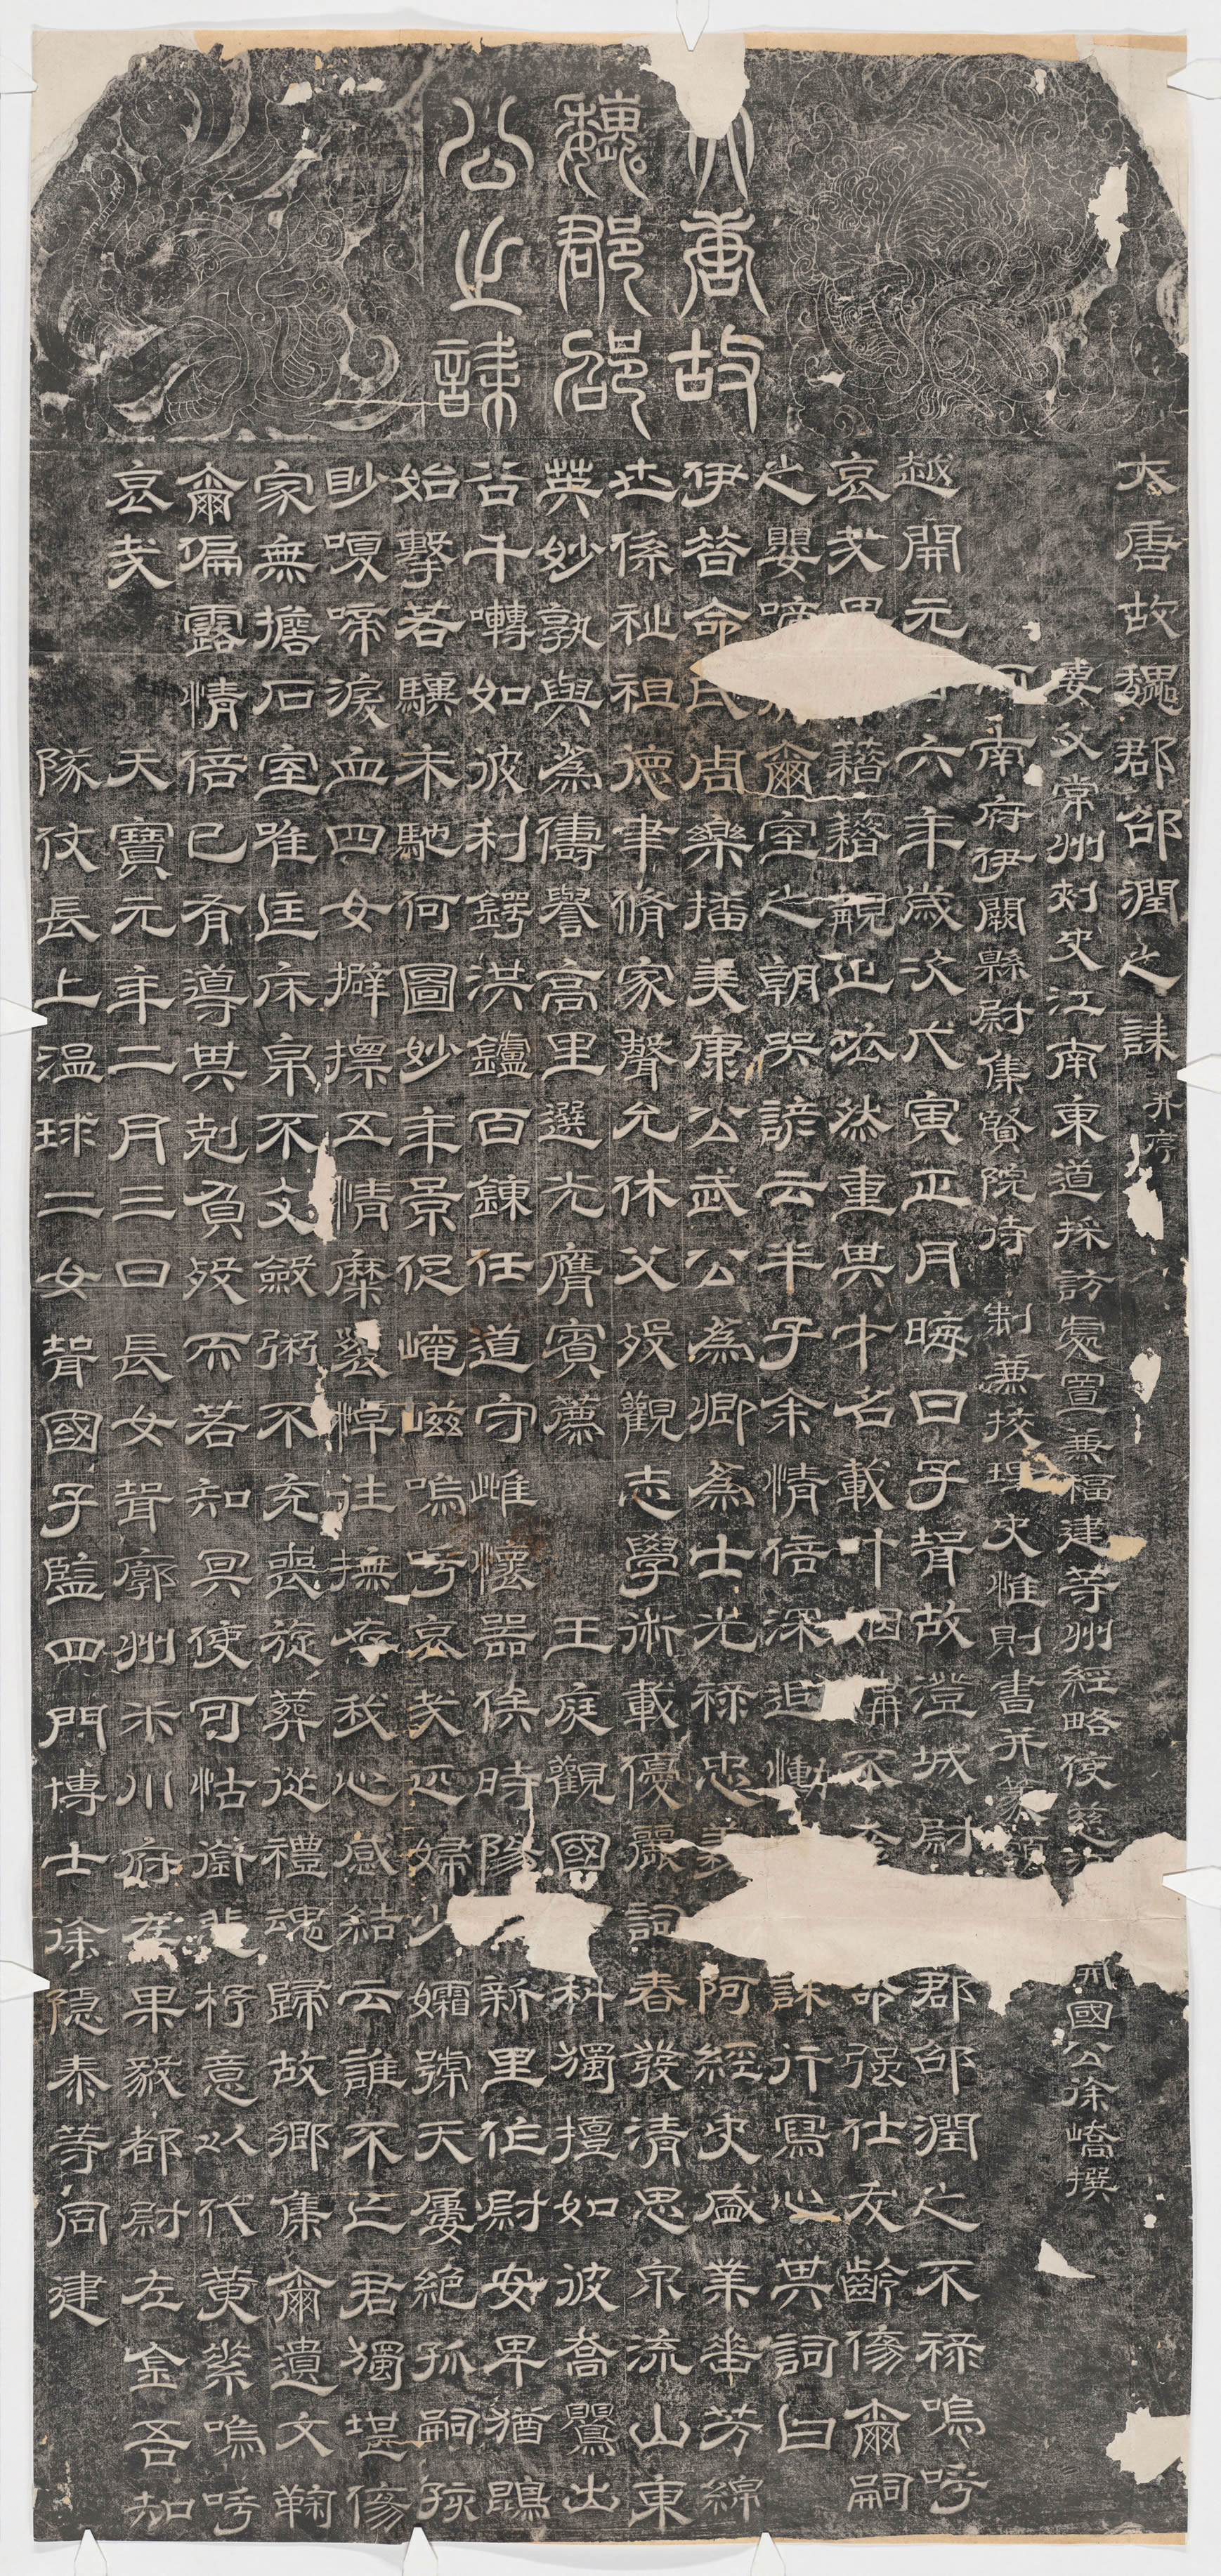 大唐故
魏郡邵
公之誄
大唐故魏郡邵潤之誄并序
妻父常州刺史江南東道採訪處置兼福建等州經略使慈 國公徐嶠撰
河南府伊闕縣尉集賢院待制兼挍理史惟則書并篆
越開元 六年歲次戊寅正月晦日子聟故澄城尉 郡邵潤之不祿嗚呼
哀哉 藉藉覩正公然重其才名載十 因 不 命強仕友齡傷爾嗣
之嬰啼 爾室之朝哭諺云半子余情倍深迫慟 誄行寫心其詞曰
伊昔命氏周樂播美康公武公為卿為士光祿忠 阿經史盛業舉芳綿
世係祉祖德聿脩家聲允休父歿觀志學術載優麗詞春發清思泉流山東
英妙孰與為儔譽高里選光膺賓薦王庭觀國 科獨擅如彼喬鸎出
谷千囀如彼利鍔洪鑪百鍊任道守雌懷器俟時隂 新里作尉安卑猶鵾
始擊若驥未馳何圖妙年景促崦嵫嗚乎哀哉匹婦少孀號天屢絕孤嗣孩
眇嗄啼淚血四女擗摽五情糜裂悼往撫存我心感結云誰不亡君獨堪傷
家無擔石室唯匡床帛不文斂粥不充喪旋葬從禮魂歸故鄉集爾遺文鞠
爾偏露情倍已有導其剋負歿而若知冥使可怙銜悲抒意以代黃素嗚呼
哀哉
天寶元年二月三日長女聟廓州米川府左果毅都尉左金吾知
隊仗長上溫球二女聟國子監四門博士徐隱泰等同建